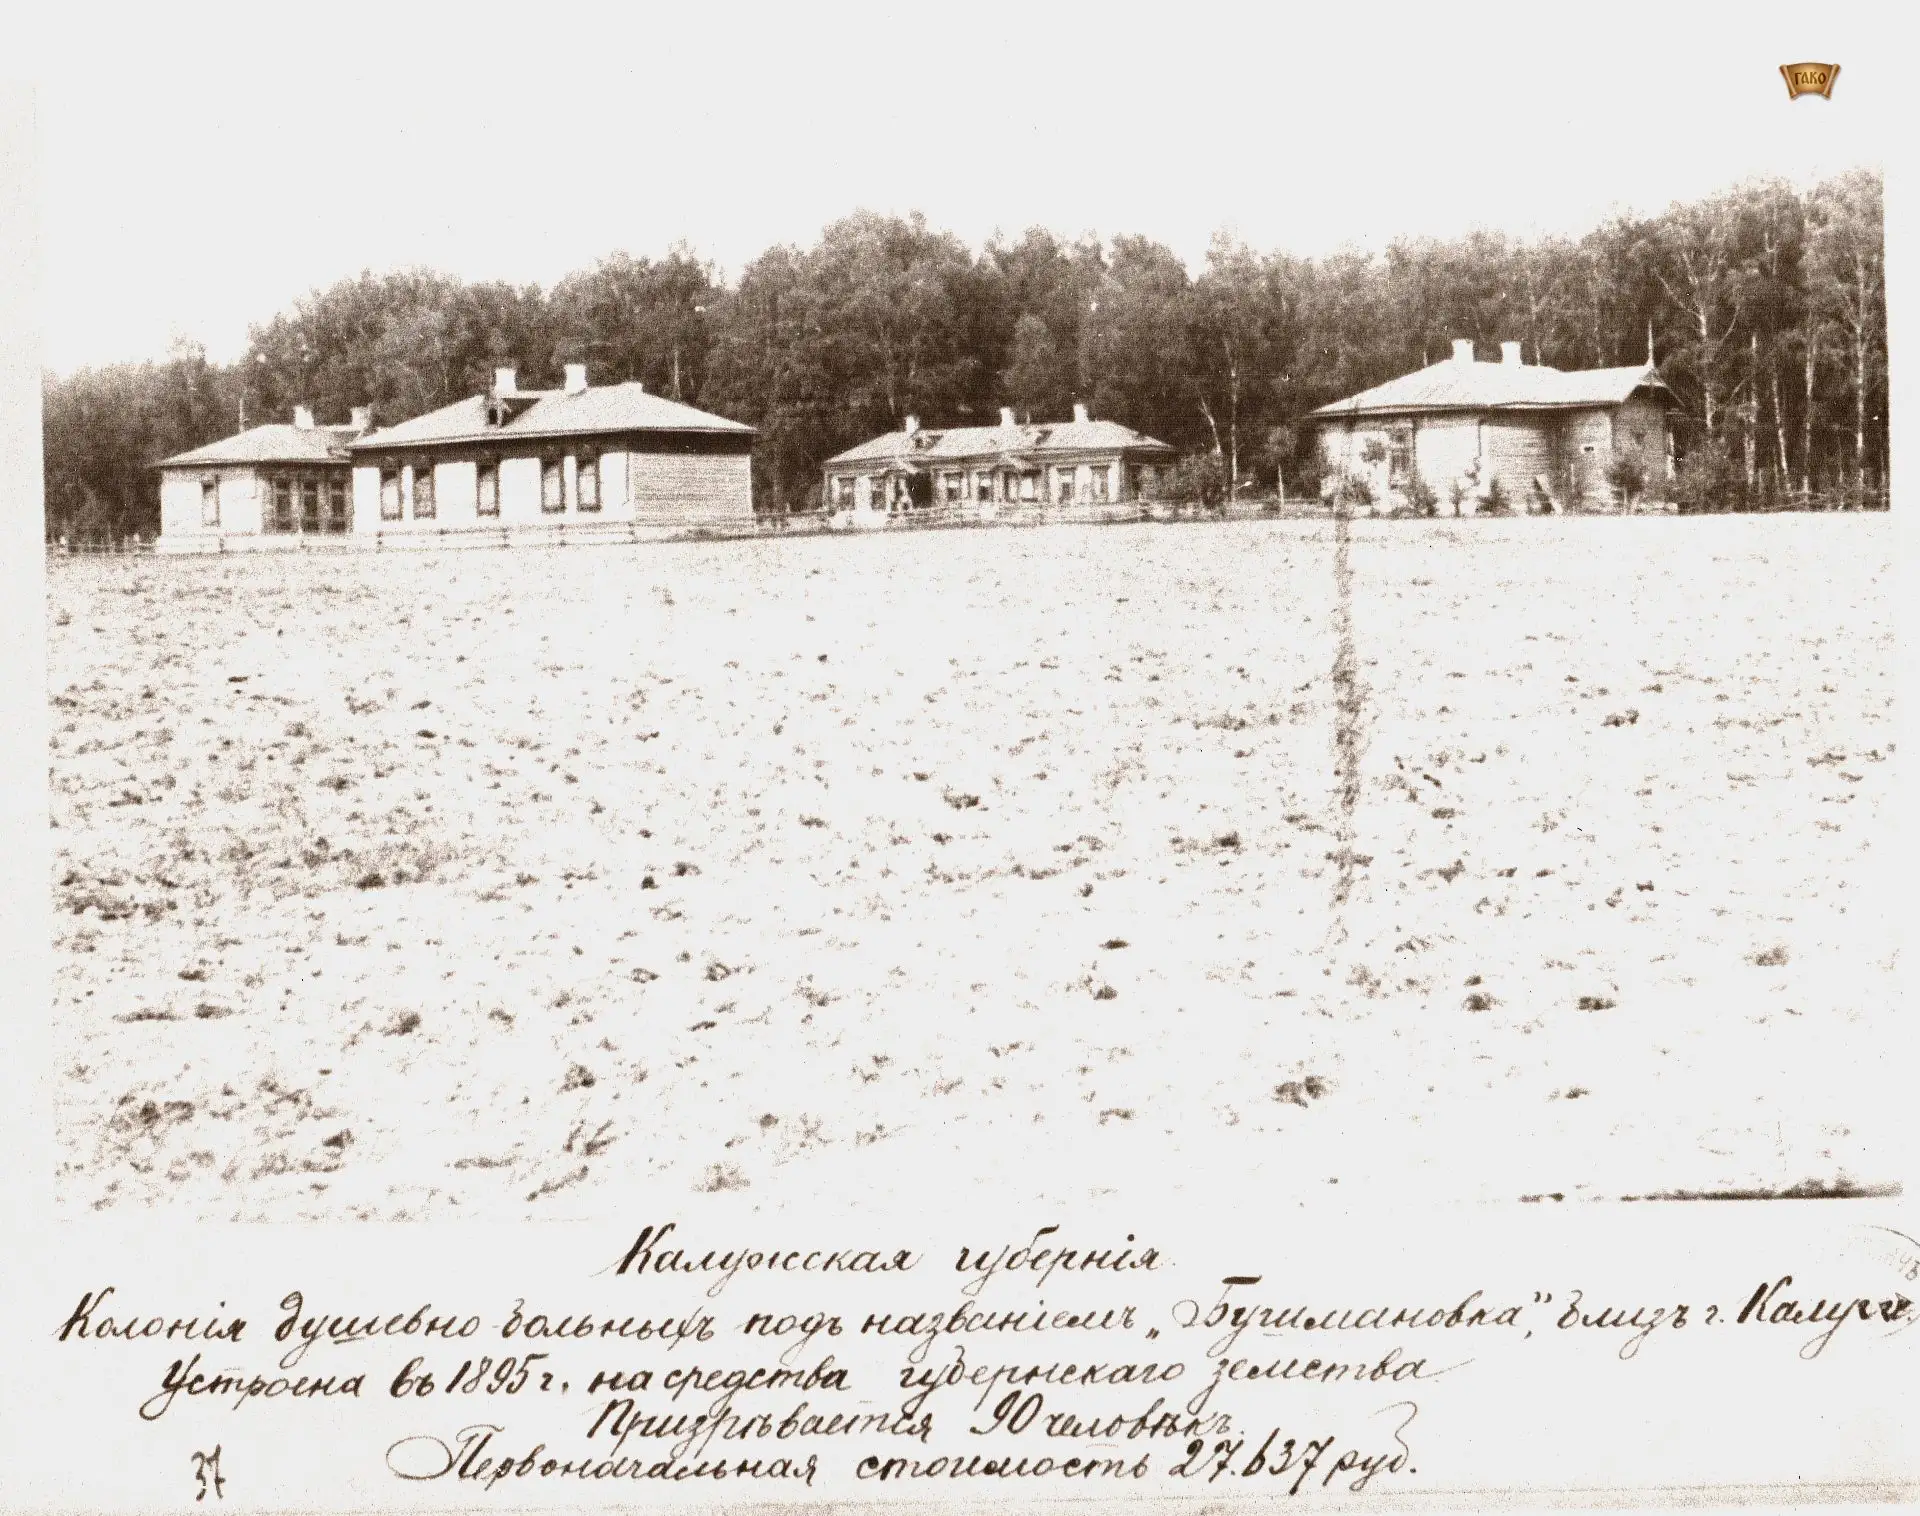 ГАКО
Калужская губернія
Колонія душевно-больныхъ подъ названіемъ „Бушмановка”, близъ г. Калуги.
Устроена въ 1895 г. на средства губернскаго земства
Призрѣвается 90 человѣкъ.
Первоначальная стоимость 27.637 руб.
37